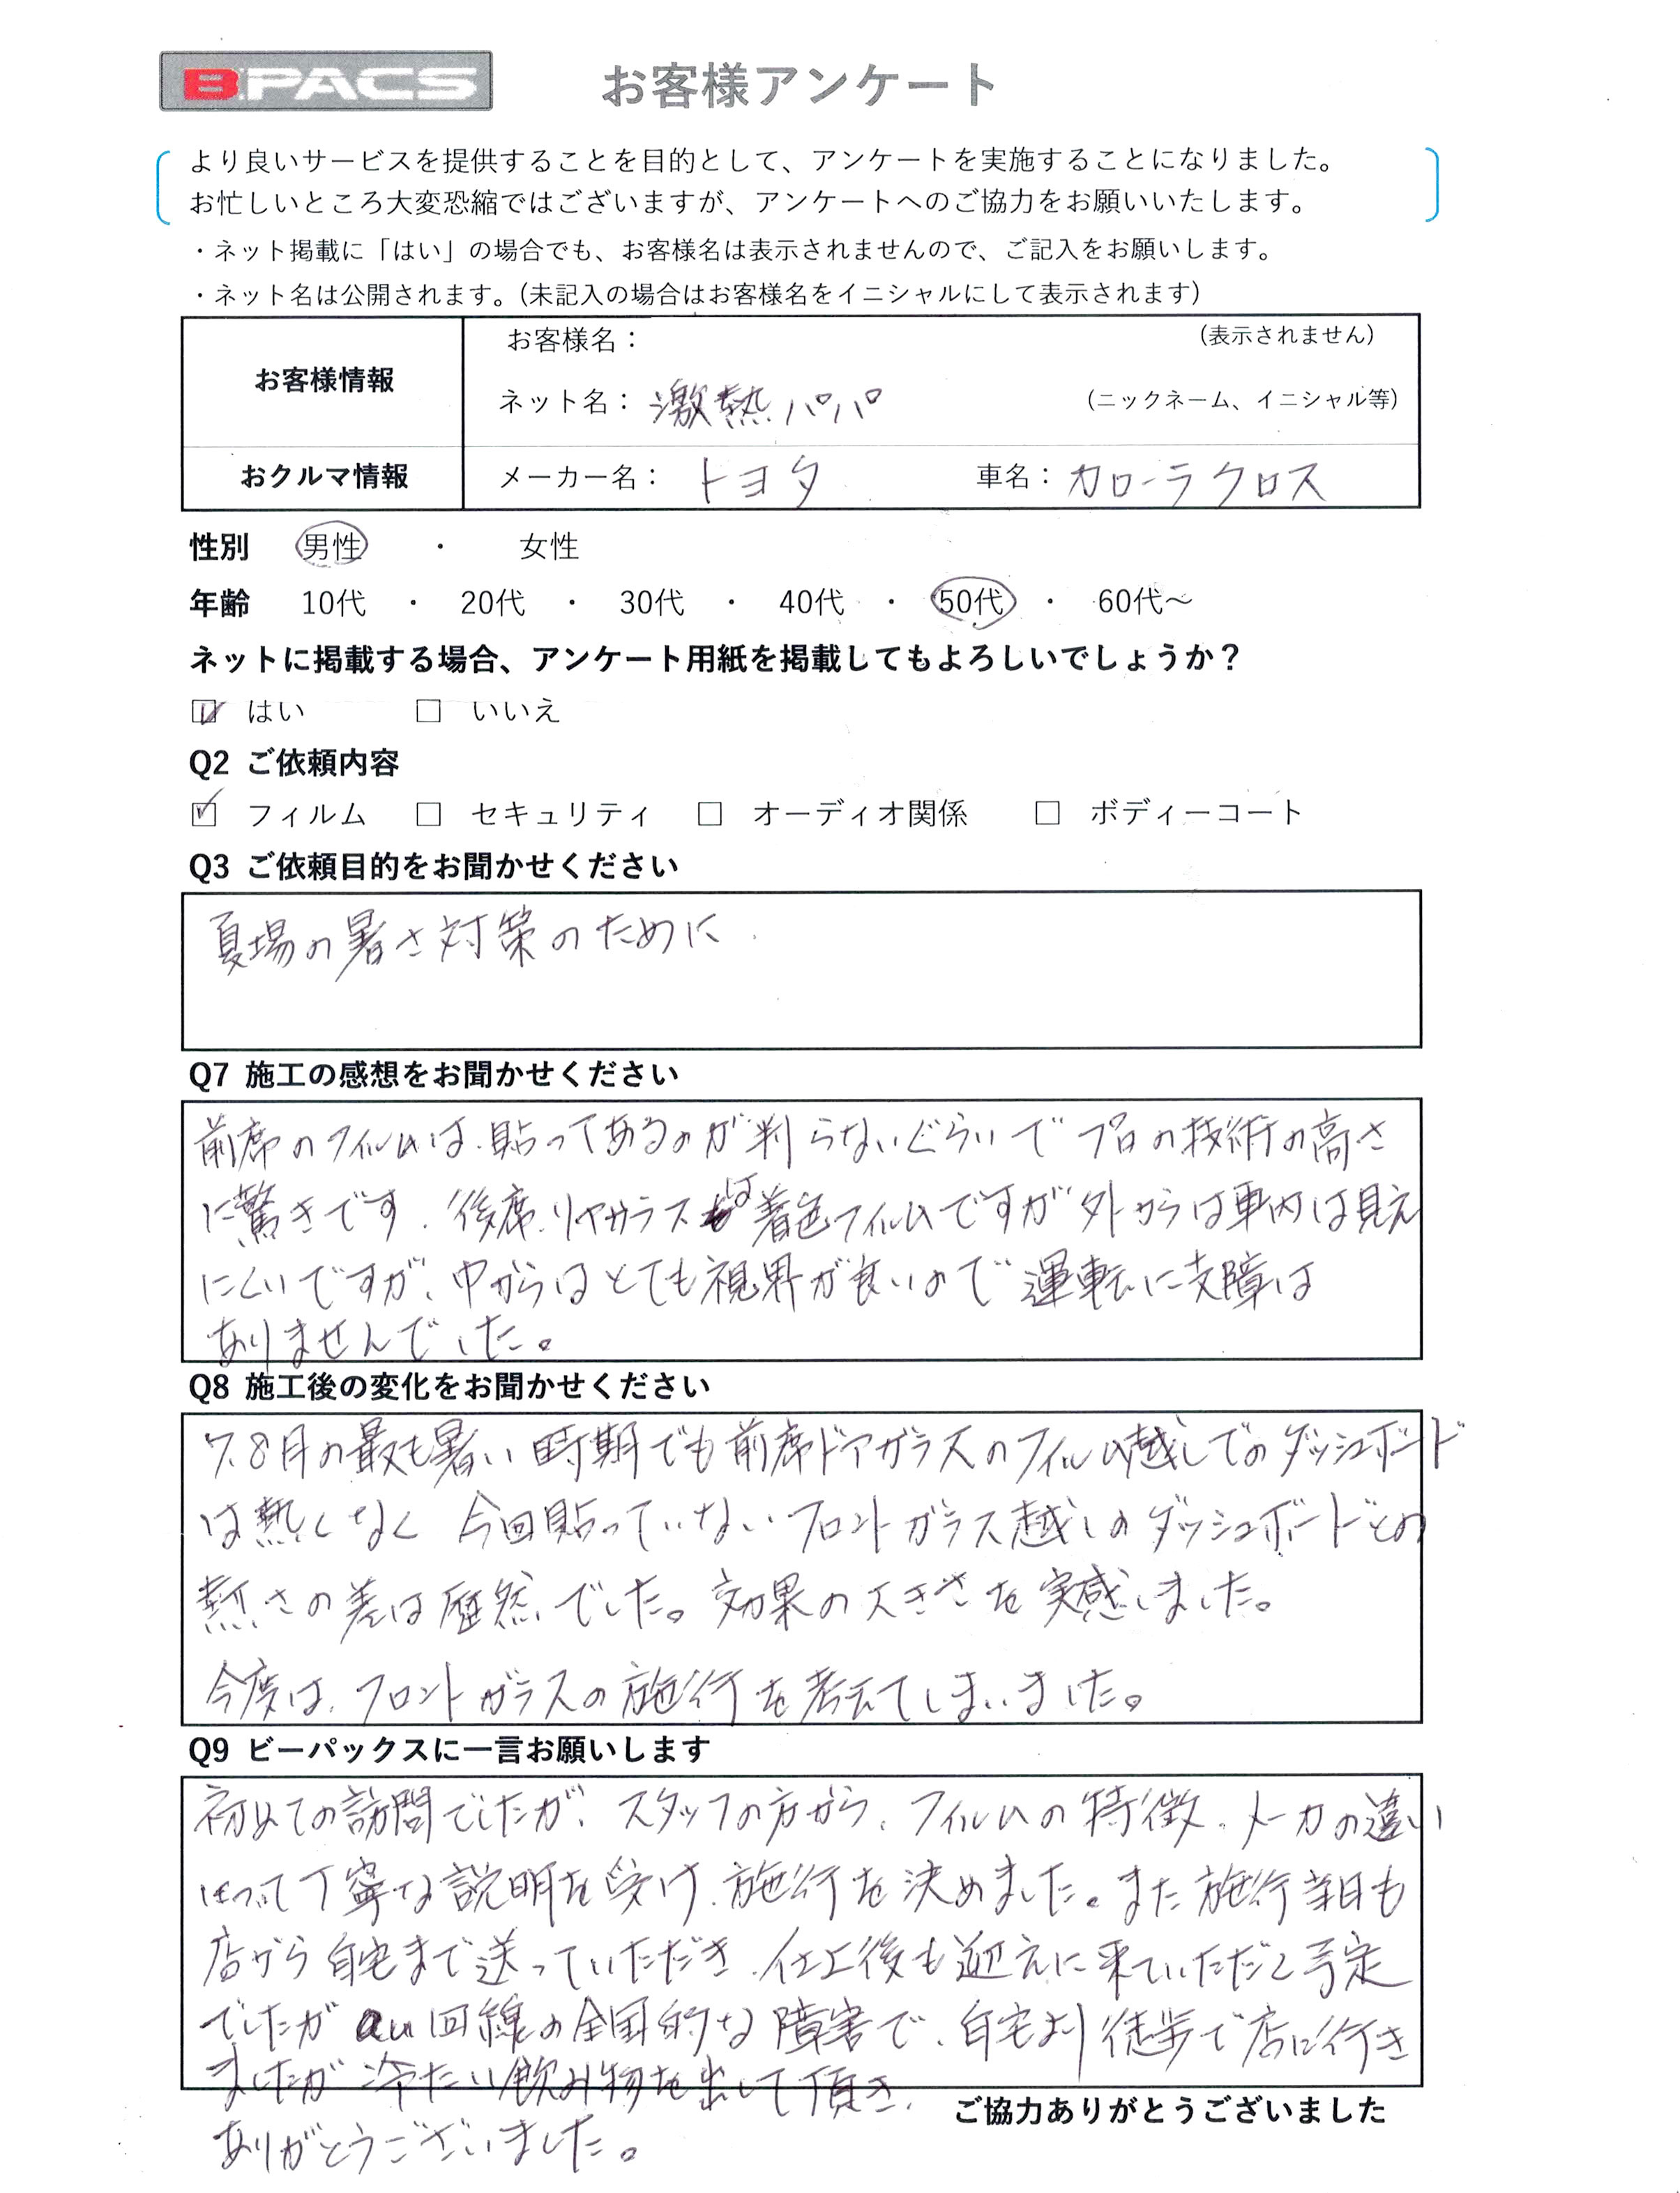 B:PACS お客様アンケート
より良いサービスを提供することを目的として、アンケートを実施することになりました。
お忙しいところ大変恐縮ではございますが、アンケートへのご協力をお願いいたします。
・ネット掲載に「はい」の場合でも、お客様名は表示されませんので、ご記入をお願いします。
・ネット名は公開されます。(未記入の場合はお客様名をイニシャルにして表示されます)
お客様情報
お客様名： (表示されません)
ネット名： 激熱パパ (ニックネーム、イニシャル等)
おクルマ情報 メーカー名： トヨタ 車名： カローラクロス
性別 男性 ・ 女性
年齢 10代 ・ 20代 ・ 30代 ・ 40代 ・ 50代 ・ 60代～
ネットに掲載する場合、アンケート用紙を掲載してもよろしいでしょうか？
☑ はい □ いいえ
Q2 ご依頼内容
☑ フィルム □ セキュリティ □ オーディオ関係 □ ボディーコート
Q3 ご依頼目的をお聞かせください
夏場の暑さ対策のために
Q7 施工の感想をお聞かせください
前席のフィルムは、貼ってあるのが判らないぐらいでプロの技術の高さ
に驚きです。後席、リヤガラスは着色フィルムですが外からは車内は見え
にくいですが、中からはとても視界が良いので運転に支障は
ありませんでした。
Q8 施工後の変化をお聞かせください
7.8月の最も暑い時期でも前席ドアガラスのフィルム越しでのダッシュボード
は熱くなく 今回貼っていないフロントガラス越しのダッシュボードとの
熱さの差は歴然でした。効果の大きさを実感しました。
今度は、フロントガラスの施行を考えてしまいました。
Q9 ビーパックスに一言お願いします
初めての訪問でしたが、スタッフの方から、フィルムの特徴、メーカの違い
丁寧な説明を受け、施行を決めました。また施行当日も
店から自宅まで送っていただき、仕上後も迎えに来ていただく予定
でしたが au回線の全国的な障害で、自宅より徒歩で店に行き
ましたが 冷たい飲み物を出して頂き、
ご協力ありがとうございました
ありがとうございました。